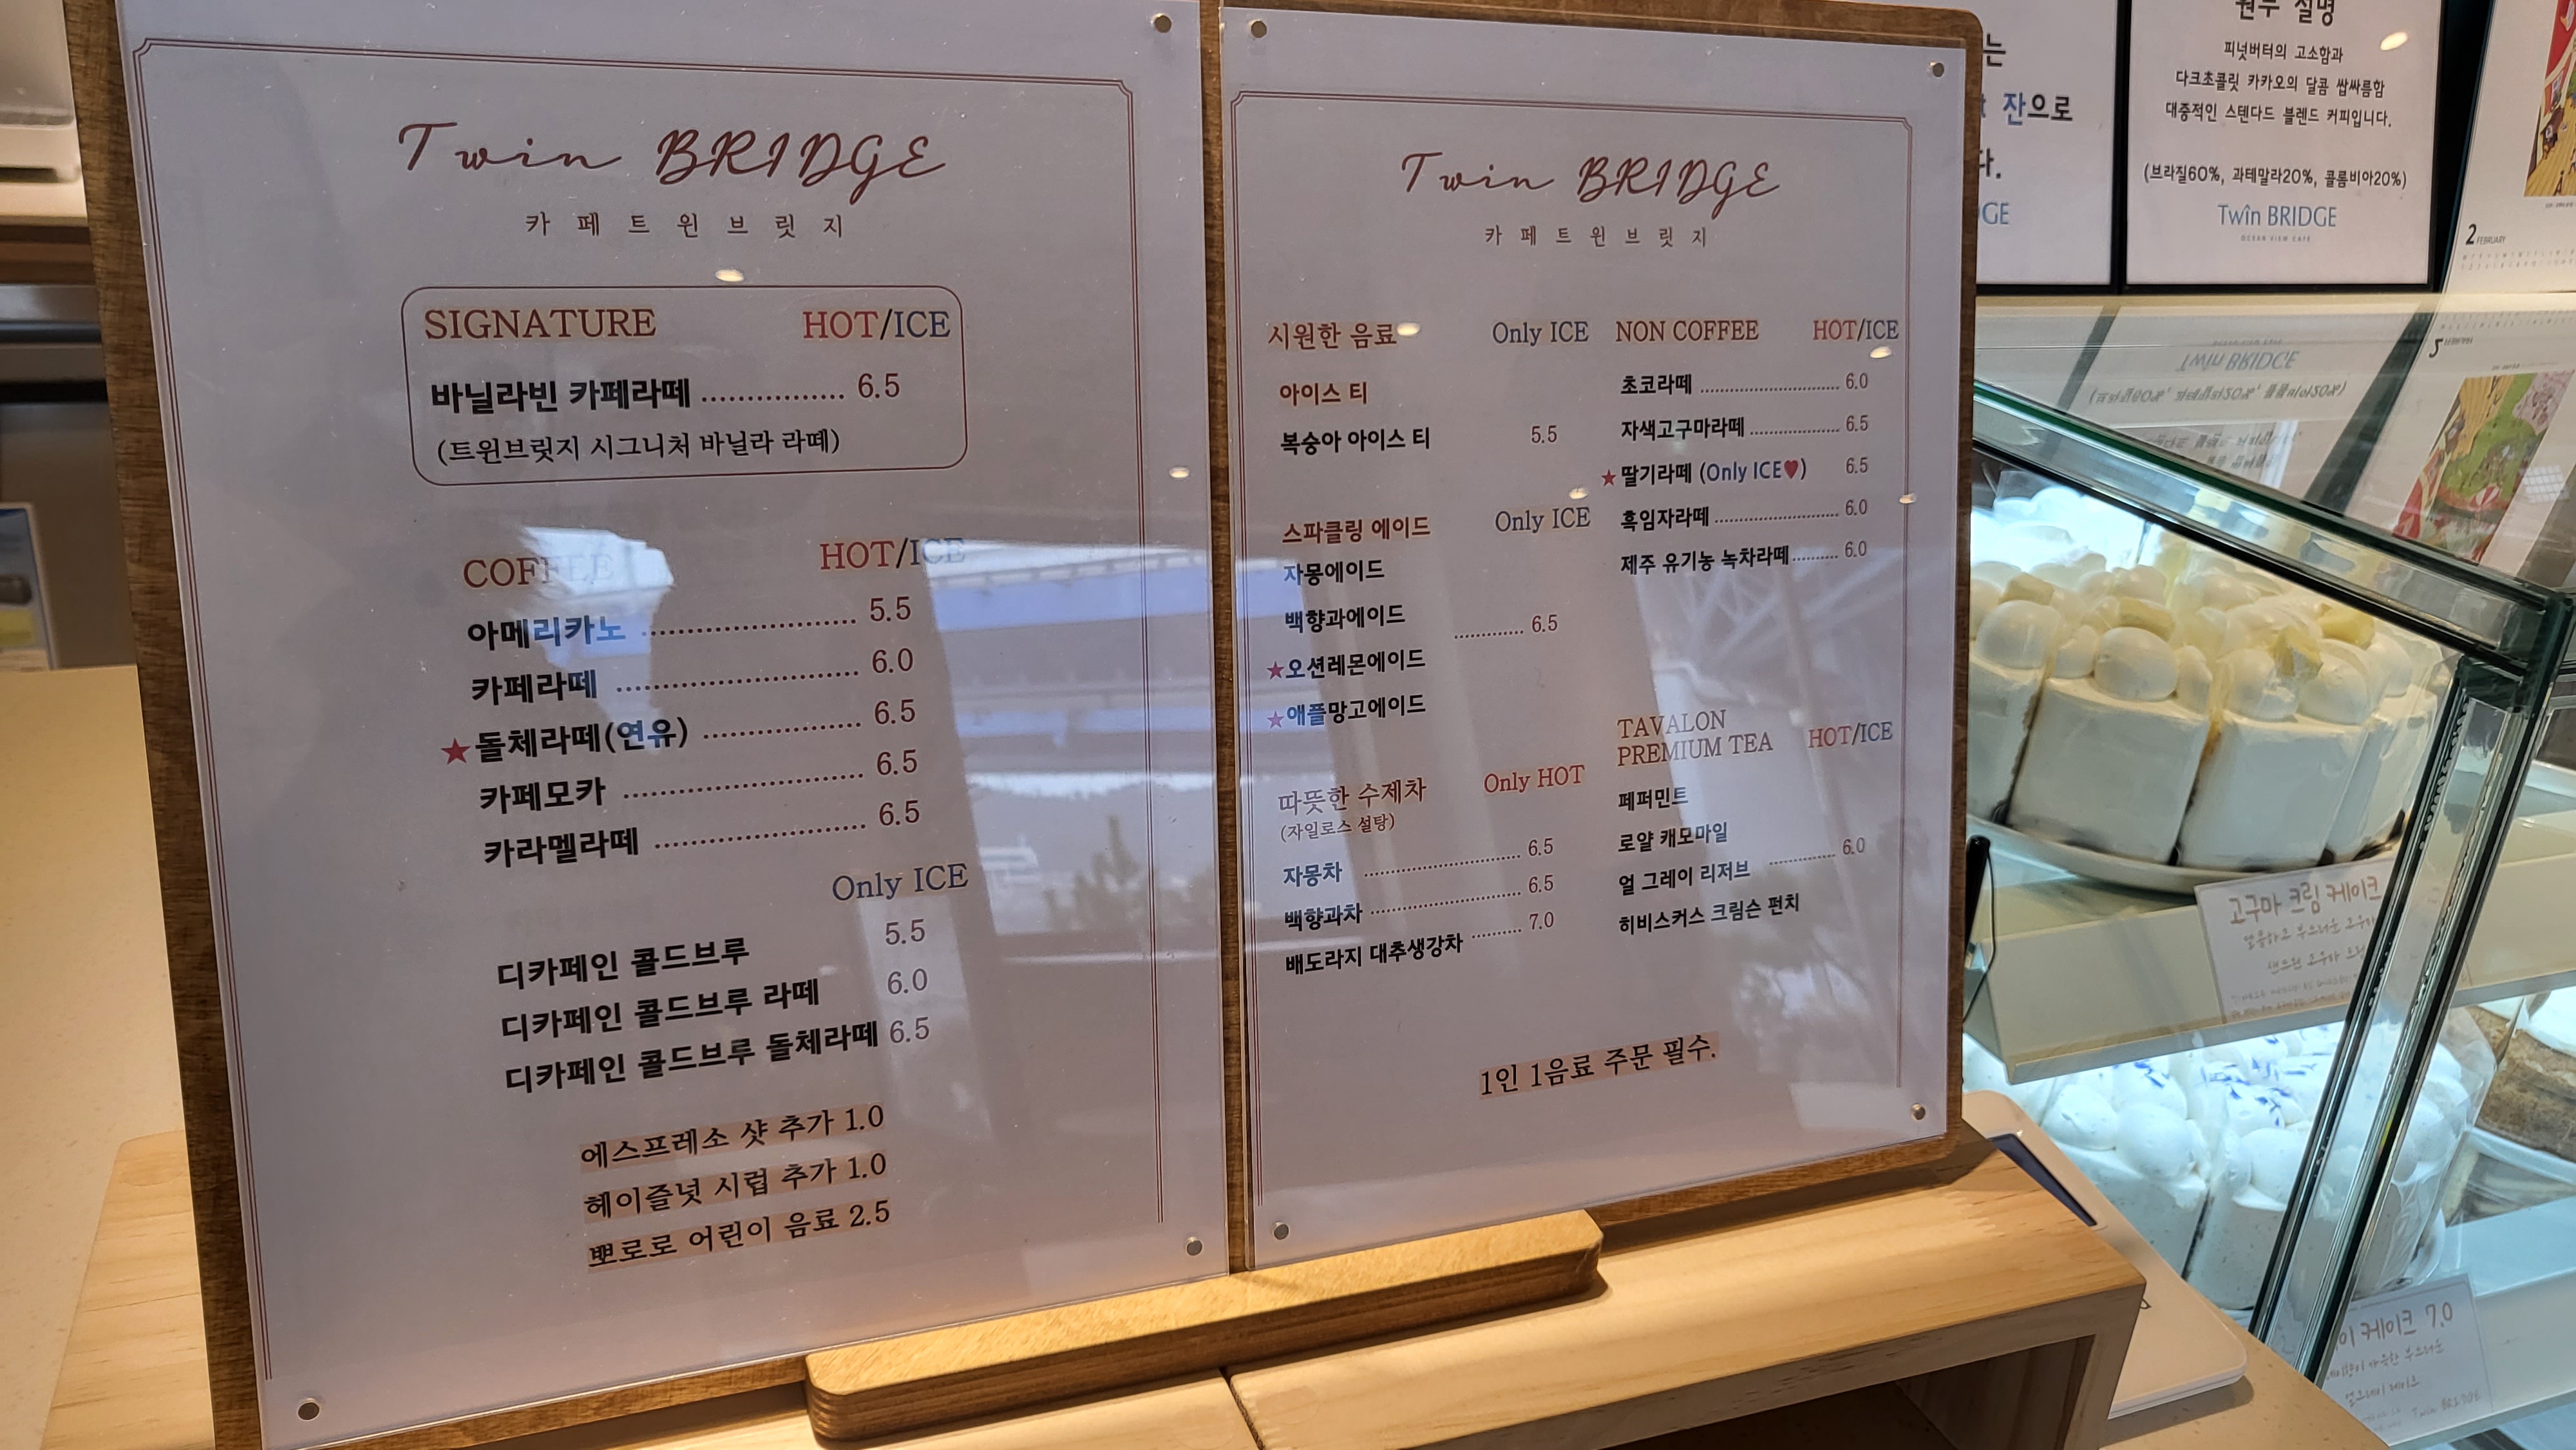 Twin BRIDGE
카페트윈브릿지
SIGNATURE HOT/ICE
바닐라빈 카페라떼 ................ 6.5
(트윈브릿지 시그니처 바닐라 라떼)
COFFEE HOT/ICE
아메리카노 ........................ 5.5
카페라떼 ........................... 6.0
★돌체라떼(연유) ................. 6.5
카페모카 ........................... 6.5
카라멜라떼 ........................ 6.5
Only ICE
디카페인 콜드브루 5.5
디카페인 콜드브루 라떼 6.0
디카페인 콜드브루 돌체라떼 6.5
에스프레소 샷 추가 1.0
헤이즐넛 시럽 추가 1.0
뽀로로 어린이 음료 2.5
Twin BRIDGE
카페트윈브릿지
시원한 음료 Only ICE
아이스 티
복숭아 아이스 티 5.5
스파클링 에이드 Only ICE
자몽에이드
백향과에이드
............ 6.5
★오션레몬에이드
★애플망고에이드
따뜻한 수제차 Only HOT
(자일로스 설탕)
자몽차 ........................... 6.5
백향과차 ........................ 6.5
배도라지 대추생강차 ......... 7.0
NON COFFEE HOT/ICE
초코라떼 ........................... 6.0
자색고구마라떼 .................. 6.5
★딸기라떼 (Only ICE♥) 6.5
흑임자라떼 ........................ 6.0
제주 유기농 녹차라떼 .......... 6.0
TAVALON
PREMIUM TEA HOT/ICE
페퍼민트
로얄 캐모마일
............ 6.0
얼 그레이 리저브
히비스커스 크림슨 펀치
1인 1음료 주문 필수.
잔으로
원두 설명
피넛버터의 고소함과
다크초콜릿 카카오의 달콤 쌉싸름함
대중적인 스텐다드 블렌드 커피입니다.
(브라질60%, 과테말라20%, 콜롬비아20%)
Twin BRIDGE
OCEAN VIEW CAFE
2 FEBRUARY
고구마 크림 케이크
케이크 7.0